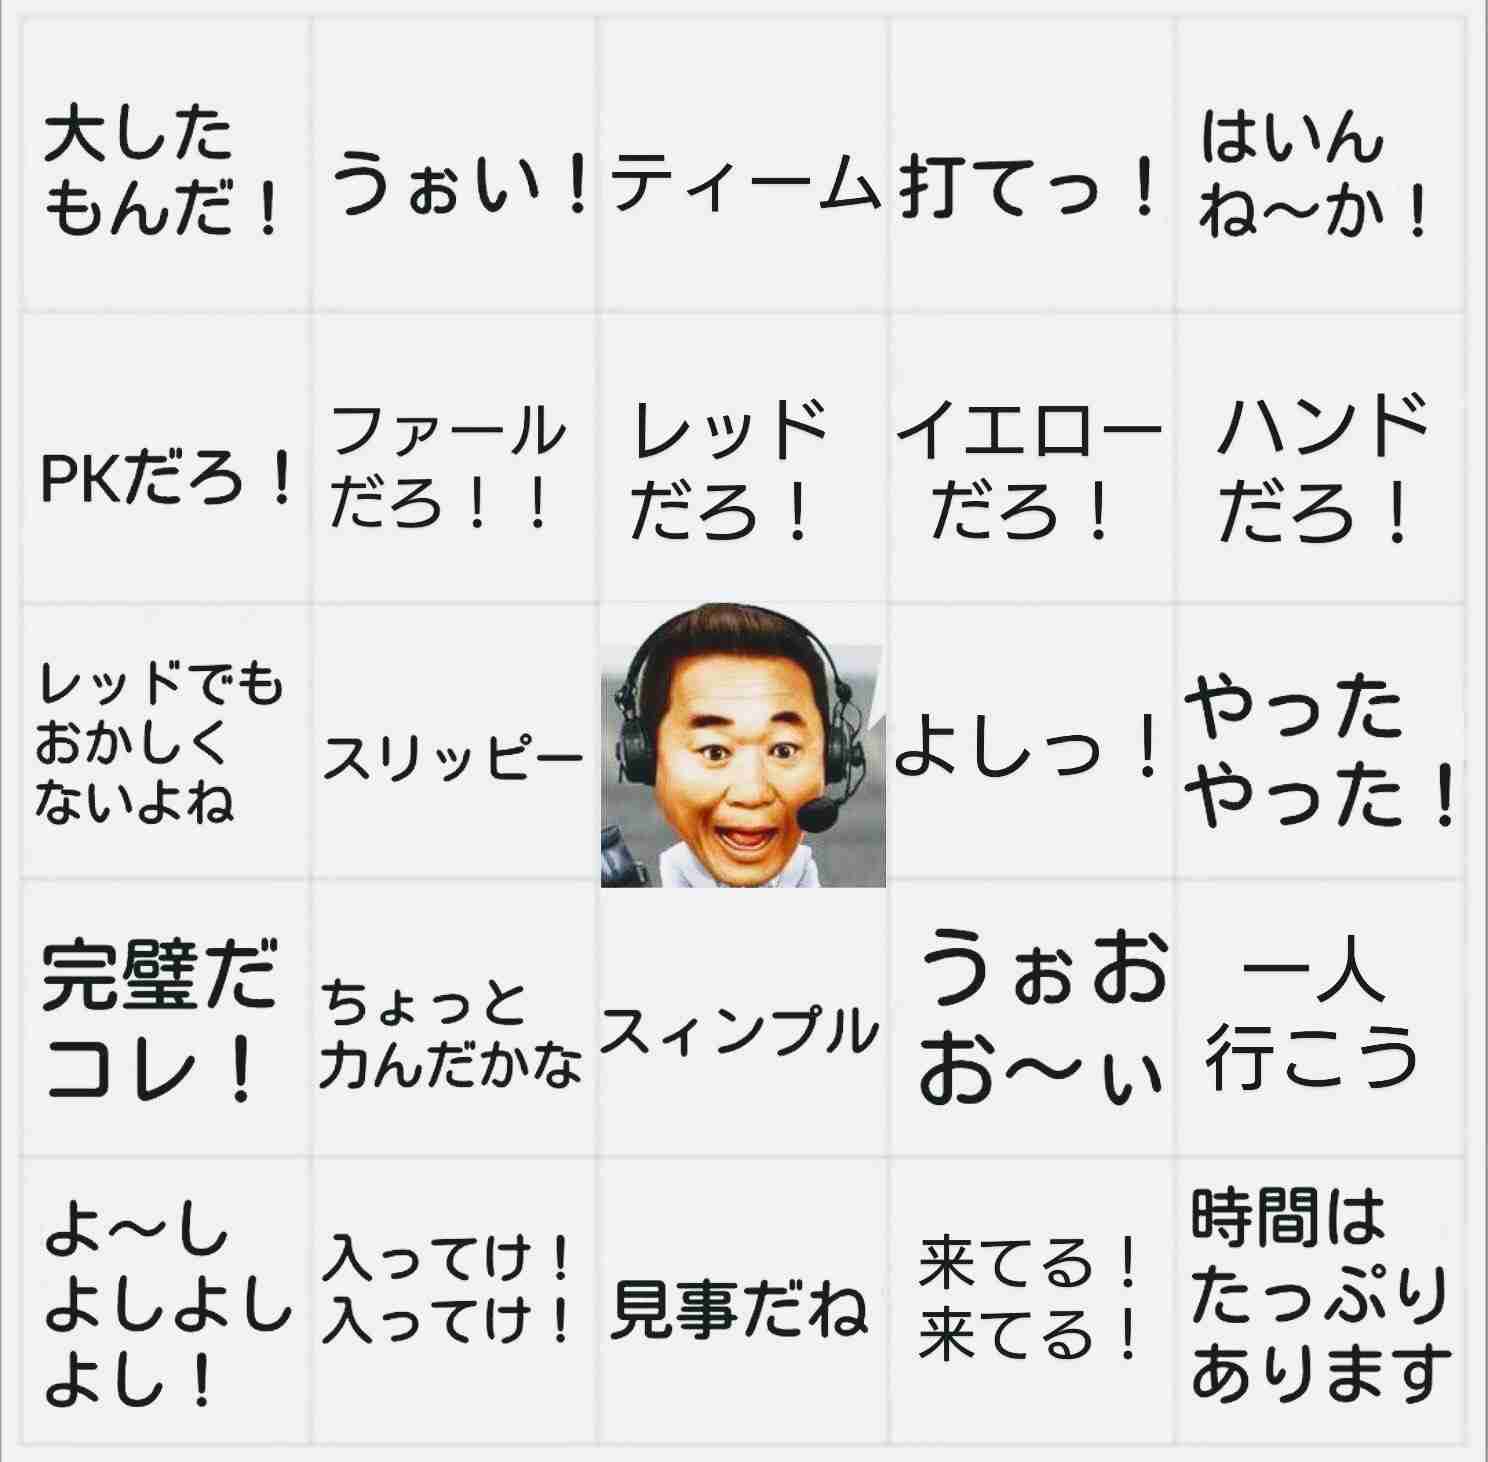 大した
もんだ！
うぉい！
ティーム
打てっ！
はいん
ね～か！
PKだろ！
ファール
だろ！！
レッド
だろ！
イエロー
だろ！
ハンド
だろ！
レッドでも
おかしく
ないよね
スリッピー
よしっ！
やった
やった！
完璧だ
コレ！
ちょっと
力んだかな
スィンプル
うぉお
お～ぃ
一人
行こう
よ～し
よしよし
よし！
入ってけ！
入ってけ！
見事だね
来てる！
来てる！
時間は
たっぷり
あります